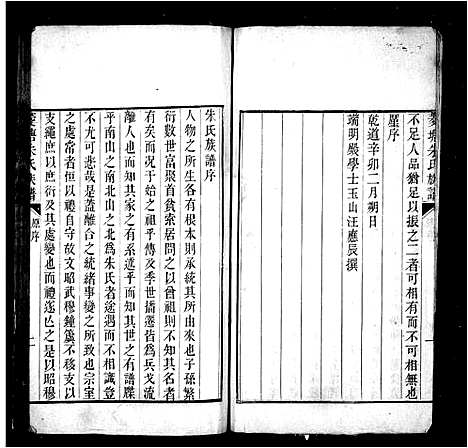 不足人品猶足以振之二者可相有而不可相無也
墅序
乾道辛卯二月朔日
端明嚴學士玉山汪應辰撰
朱氏族譜序
人物之所生各有根柢氏族之所出各有本源今子孫繁
衍數世富聚首貧索居問之以曾祖則不知其名者
有矣而况於始之祖乎傳及季世播遷皆為兵戈流
離而不知其家之有系遠乎而知其世之有譜牒
乎南山之南北山之北為朱氏者途遇而不相識豈
不尤可悲哉是蓋離合之統緒事變之所致也宗室
之處常者恒以禮自守故文昭武穆鐘簴不移支以
支繩庶以庶衍其處變也而禮遂亾之是以昭穆
族譜
原序